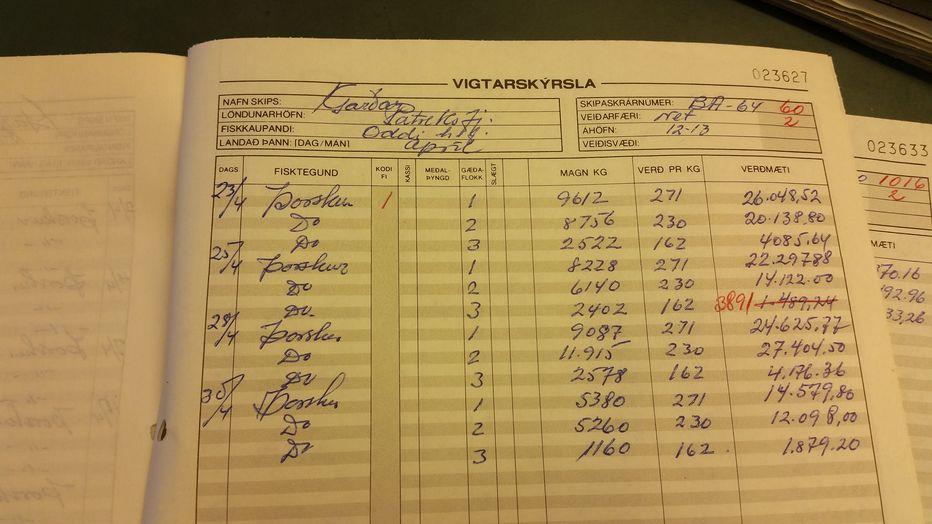 023627
VIGTARSKÝRSLA
NAFN SKIPS: Garðar
LÖNDUNARHÖFN: Patreksfj.
FISKKAUPANDI: Oddi h/f.
LANDAÐ ÞANN: [DAG/MÁN] Apríl
SKIPASKRÁRNÚMER: BA-64 60
VEIÐARFÆRI: Net 2
ÁHÖFN: 12-13
VEIÐISVÆÐI:
DAGS FISKTEGUND KODI FI KASSI MEDAL-ÞYNGD GÆÐA-FLOKK SLÆGT MAGN KG VERÐ PR KG VERÐMÆTI
23/4 Þorskur 1 1 9612 271 26.048,52
Do 2 8756 230 20.138,80
Do 3 2522 162 4085.64
25/4 Þorskur 1 8228 271 22.297.88
Do 2 6140 230 14.122.00
Do 3 2402 162 3891 1.489,24
28/4 Þorskur 1 9087 271 24.625,77
Do 2 11.915 230 27.404.50
Do 3 2578 162 4.176.36
30/4 Þorskur 1 5380 271 14.579,80
Do 2 5260 230 12.098,00
Do 3 1160 162 1.879.20
023633
1016
2
MÆTI
70.16
92.96
33,26